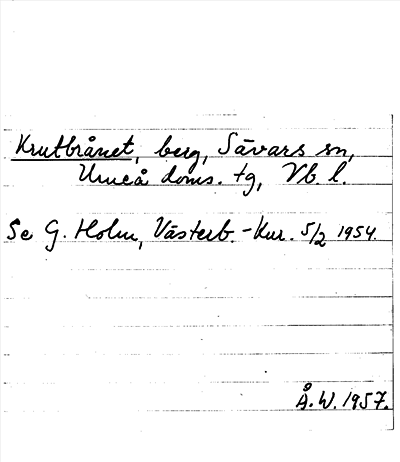 Krutbrånet, berg, Sävars sn,
Umeå doms. tg, Vb. l.
Se G. Holm, Västerb.-Kur. 5/2 1954.
Å.W. 1957.